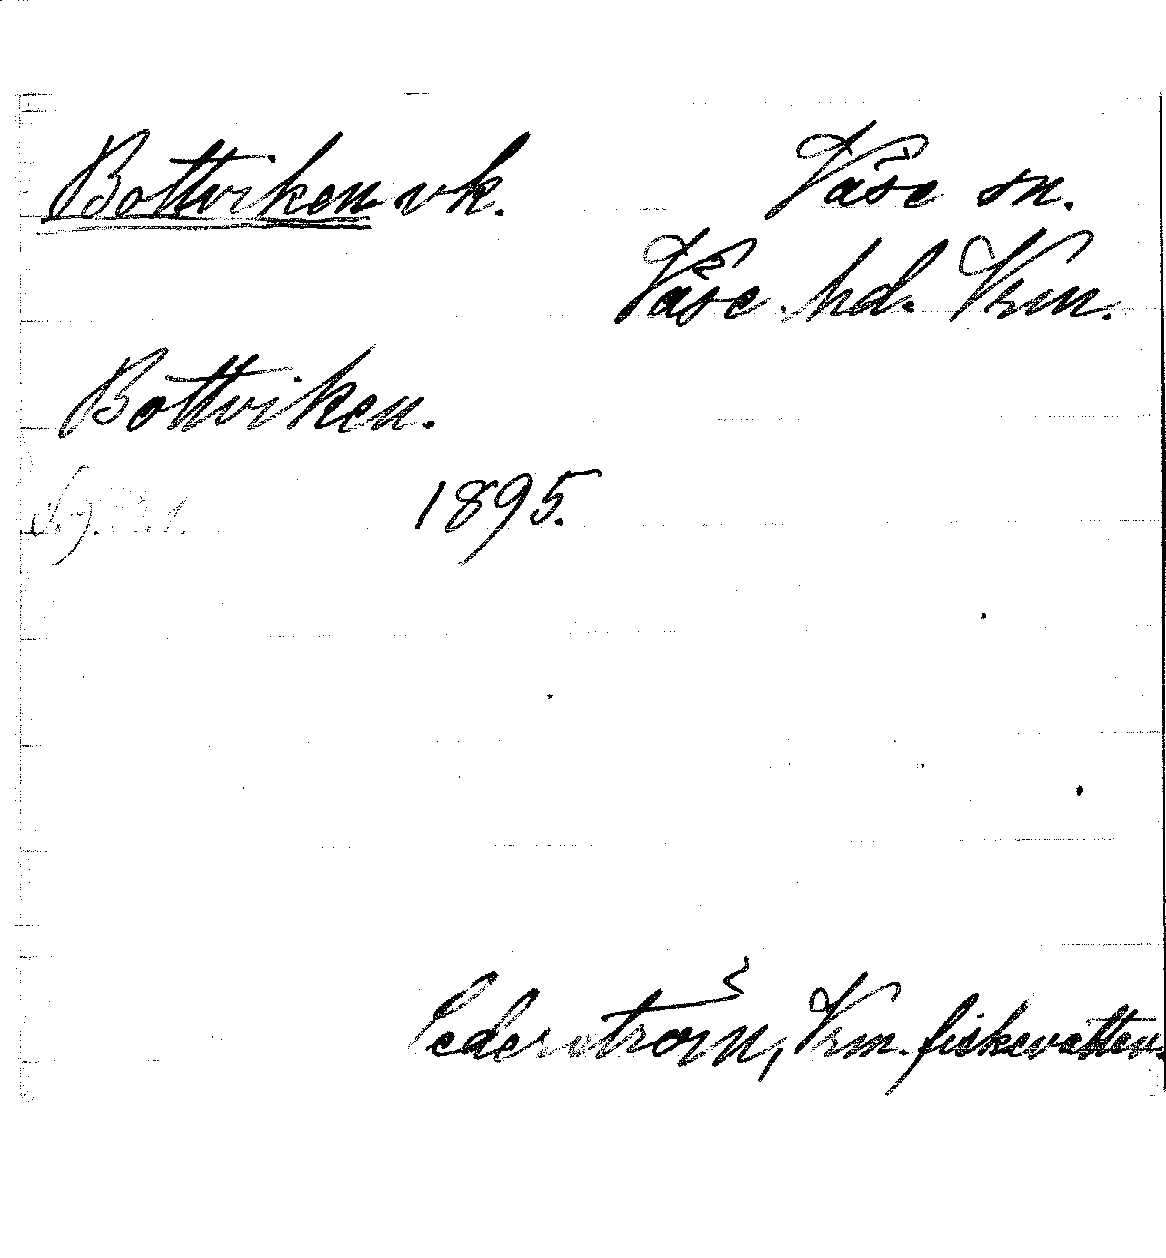 Bottviken vk. Väse sn.
Väse hd. Vrm.
Bottviken.
1895.
Cederström, Vrm. fiskevatten.